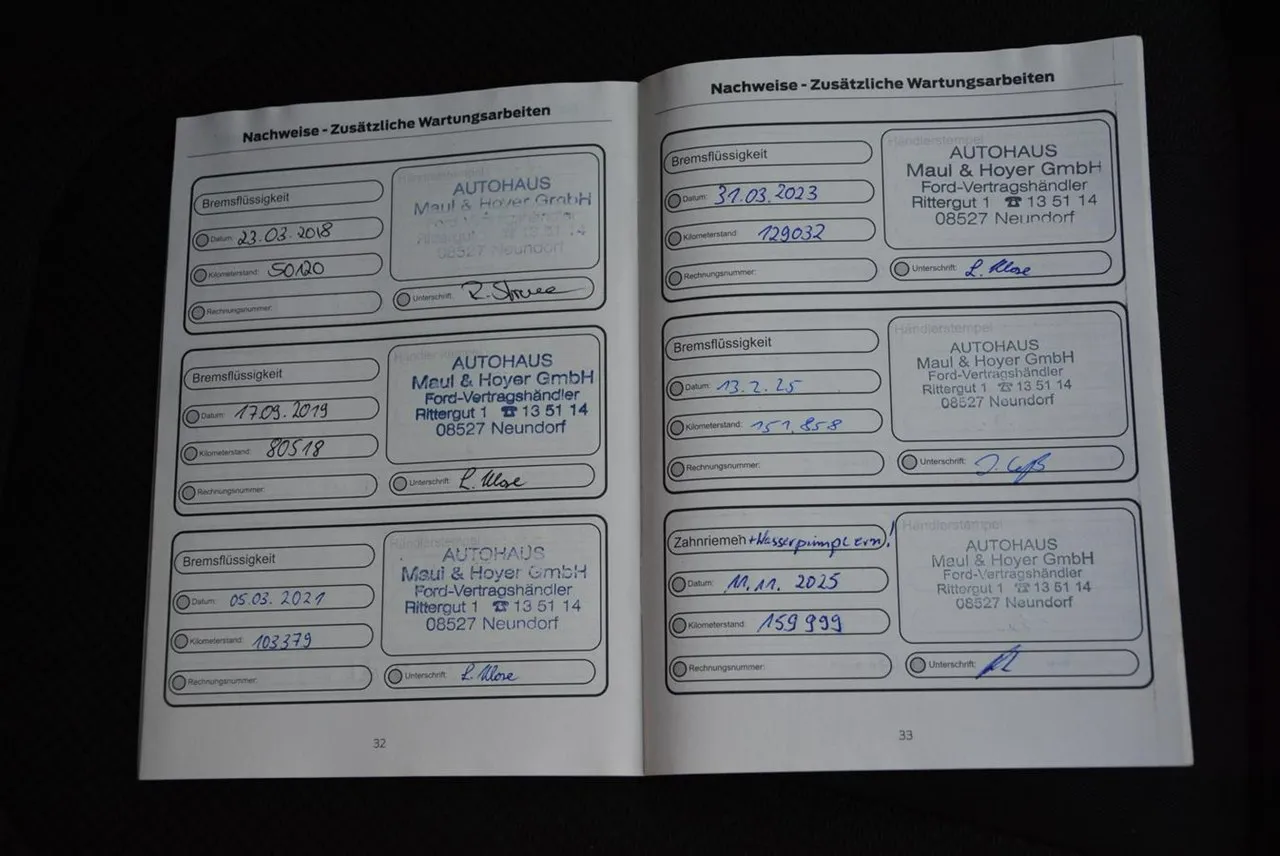 Nachweise - Zusätzliche Wartungsarbeiten
Bremsflüssigkeit
Datum: 23.03.2018
Kilometerstand: 50120
Rechnungsnummer:
AUTOHAUS
Maul & Hoyer GmbH
Ford-Vertragshändler
Rittergut 1 ☎ 13 51 14
08527 Neundorf
Unterschrift:
Bremsflüssigkeit
Datum: 17.09.2019
Kilometerstand: 80518
Rechnungsnummer:
Händlerstempel
AUTOHAUS
Maul & Hoyer GmbH
Ford-Vertragshändler
Rittergut 1 ☎ 13 51 14
08527 Neundorf
Unterschrift: L. Klose
Bremsflüssigkeit
Datum: 05.03.2021
Kilometerstand: 103379
Rechnungsnummer:
Händlerstempel
AUTOHAUS
Maul & Hoyer GmbH
Ford-Vertragshändler
Rittergut 1 ☎ 13 51 14
08527 Neundorf
Unterschrift: L. Klose
32
Nachweise - Zusätzliche Wartungsarbeiten
Bremsflüssigkeit
Datum: 31.03.2023
Kilometerstand: 129032
Rechnungsnummer:
Händlerstempel
AUTOHAUS
Maul & Hoyer GmbH
Ford-Vertragshändler
Rittergut 1 ☎ 13 51 14
08527 Neundorf
Unterschrift: L. Klose
Bremsflüssigkeit
Datum: 13.2.25
Kilometerstand: 151.858
Rechnungsnummer:
Händlerstempel
AUTOHAUS
Maul & Hoyer GmbH
Ford-Vertragshändler
Rittergut 1 ☎ 13 51 14
08527 Neundorf
Unterschrift:
Zahnriemen + Wasserpumpe ern!
Datum: 11.11.2025
Kilometerstand: 159999
Rechnungsnummer:
Händlerstempel
AUTOHAUS
Maul & Hoyer GmbH
Ford-Vertragshändler
Rittergut 1 ☎ 13 51 14
08527 Neundorf
Unterschrift:
33